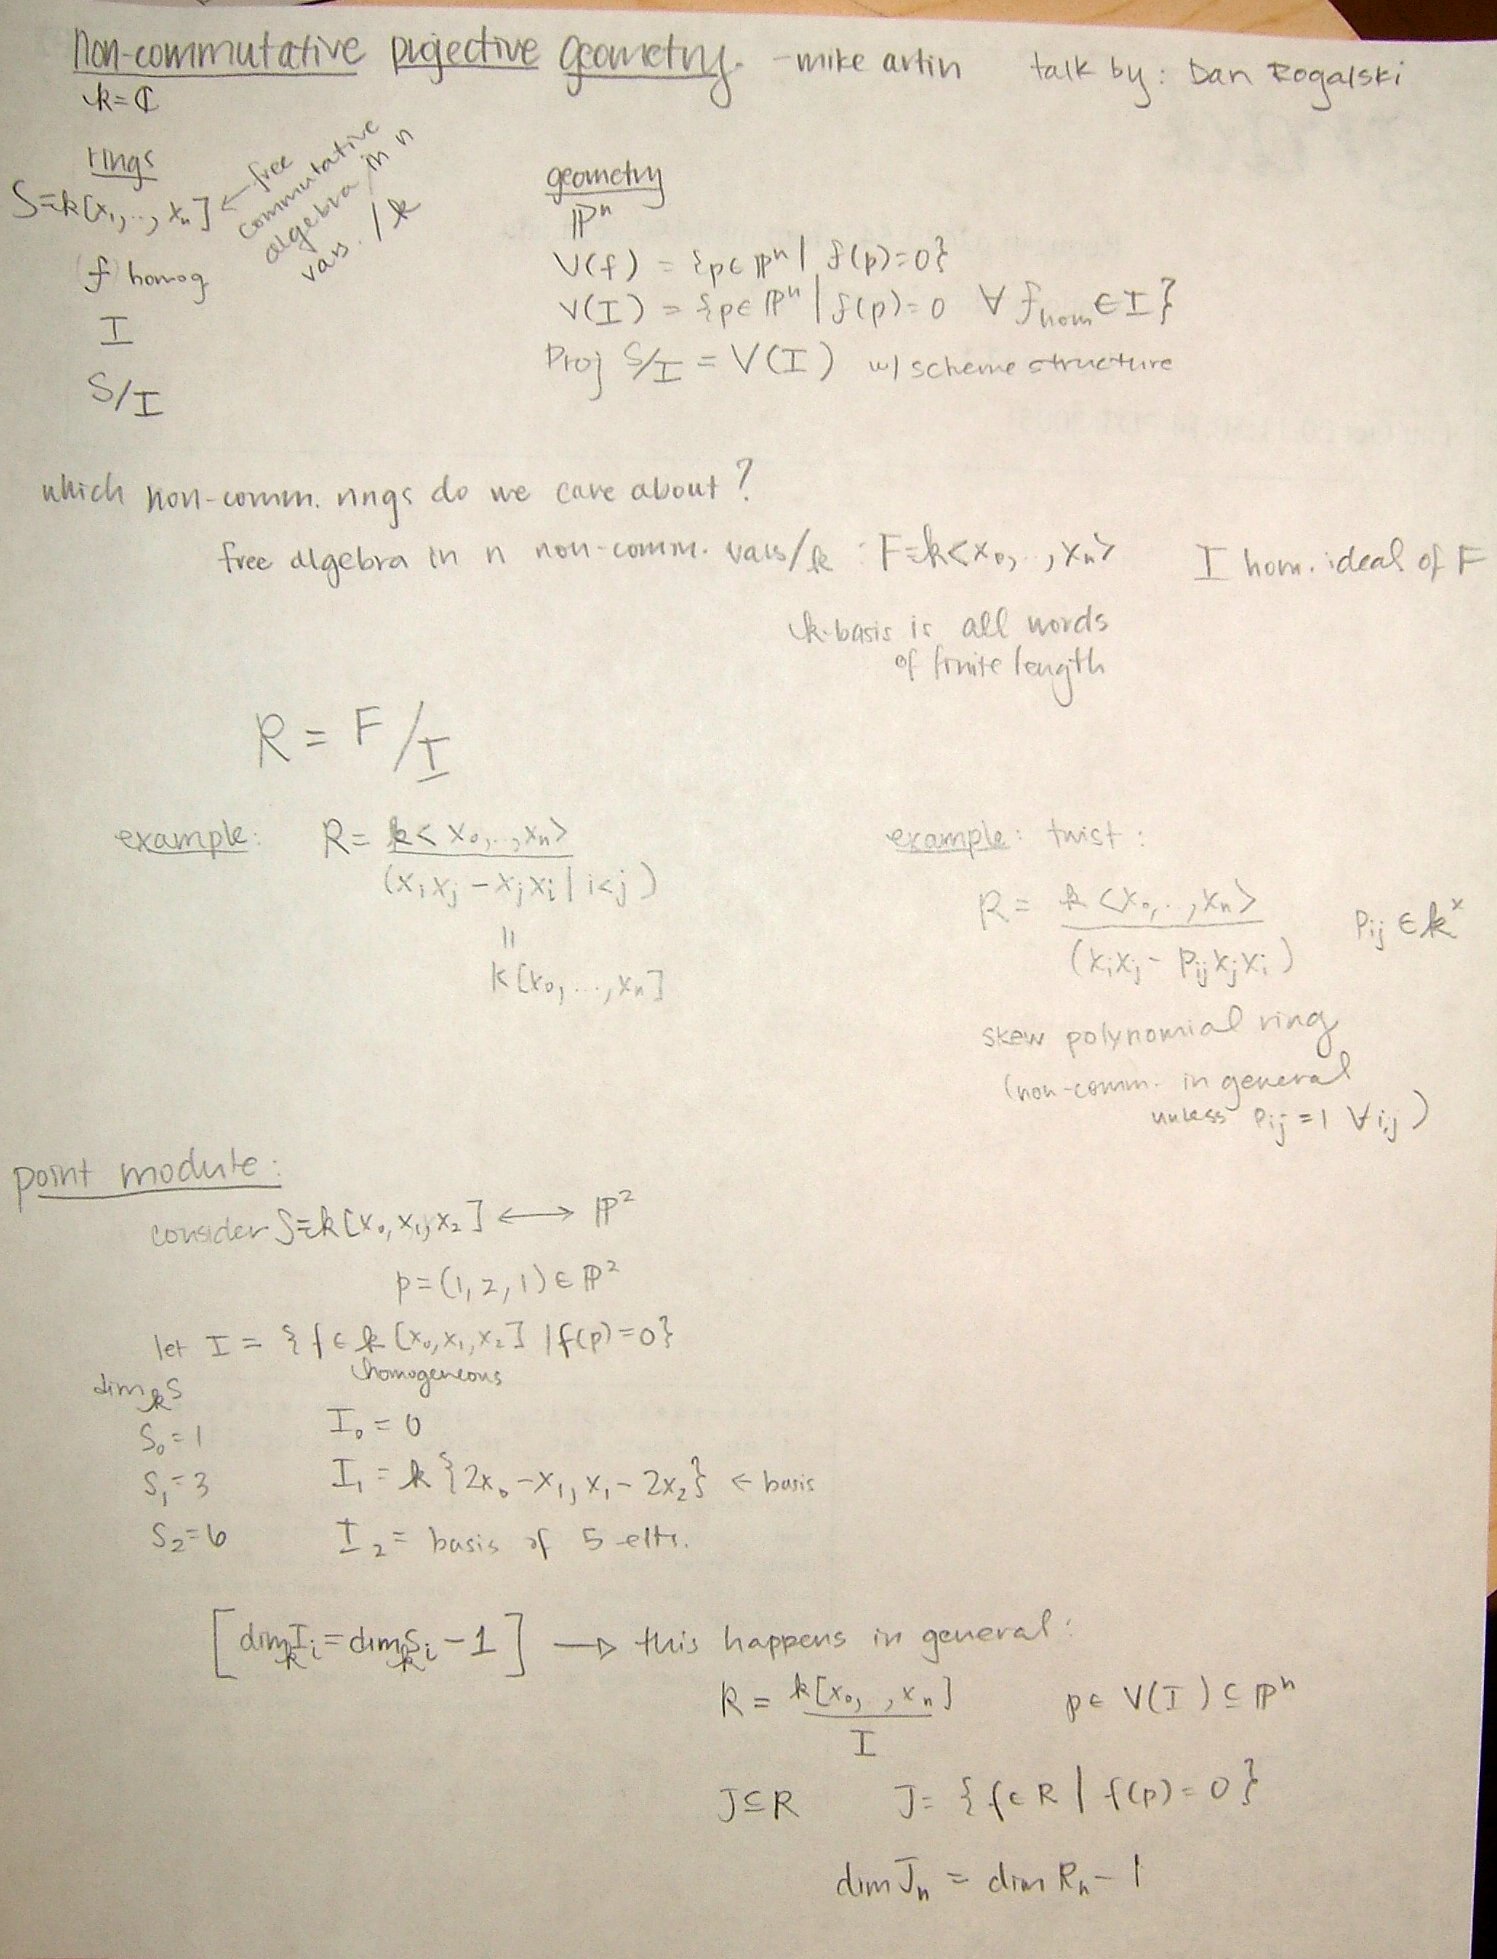 non-commutative projective geometry. - mike artin talk by: Dan Rogalski
k = ℂ
rings
S=k[x₁,..,xₙ] ← free commutative algebra in n vars. / k
f homog
I
S/I
geometry
ℙⁿ
V(f) = {p∈ℙⁿ | f(p)=0}
V(I) = {p∈ℙⁿ | f(p)=0 ∀ f_hom ∈ I}
Proj S/I = V(I) w/ scheme structure
which non-comm. rings do we care about?
free algebra in n non-comm. vars/k : F=k<x₀,..,xₙ> I hom. ideal of F
k-basis is all words
of finite length
R = F/I
example: R = k<x₀,..,xₙ>
(xᵢxⱼ - xⱼxᵢ | i<j)
=
k[x₀,...,xₙ]
example: twist:
R = k<x₀,..,xₙ> pᵢⱼ ∈ k^x
(xᵢxⱼ - pᵢⱼxⱼxᵢ)
skew polynomial ring
(non-comm. in general
unless pᵢⱼ=1 ∀ i,j)
point module:
consider S=k[x₀,x₁,x₂] ⟷ ℙ²
p=(1,2,1)∈ℙ²
let I = {f∈k[x₀,x₁,x₂] | f(p)=0}
homogeneous
dim_k S
S₀=1 I₀=0
S₁=3 I₁ = k{2x₀-x₁, x₁-2x₂} ← basis
S₂=6 I₂ = basis of 5 elts.
[dim_k Iᵢ = dim_k Sᵢ - 1] → this happens in general:
R = k[x₀,..,xₙ] p∈V(I)⊆ℙⁿ
I
J⊆R J={f∈R | f(p)=0}
dim Jₙ = dim Rₙ - 1